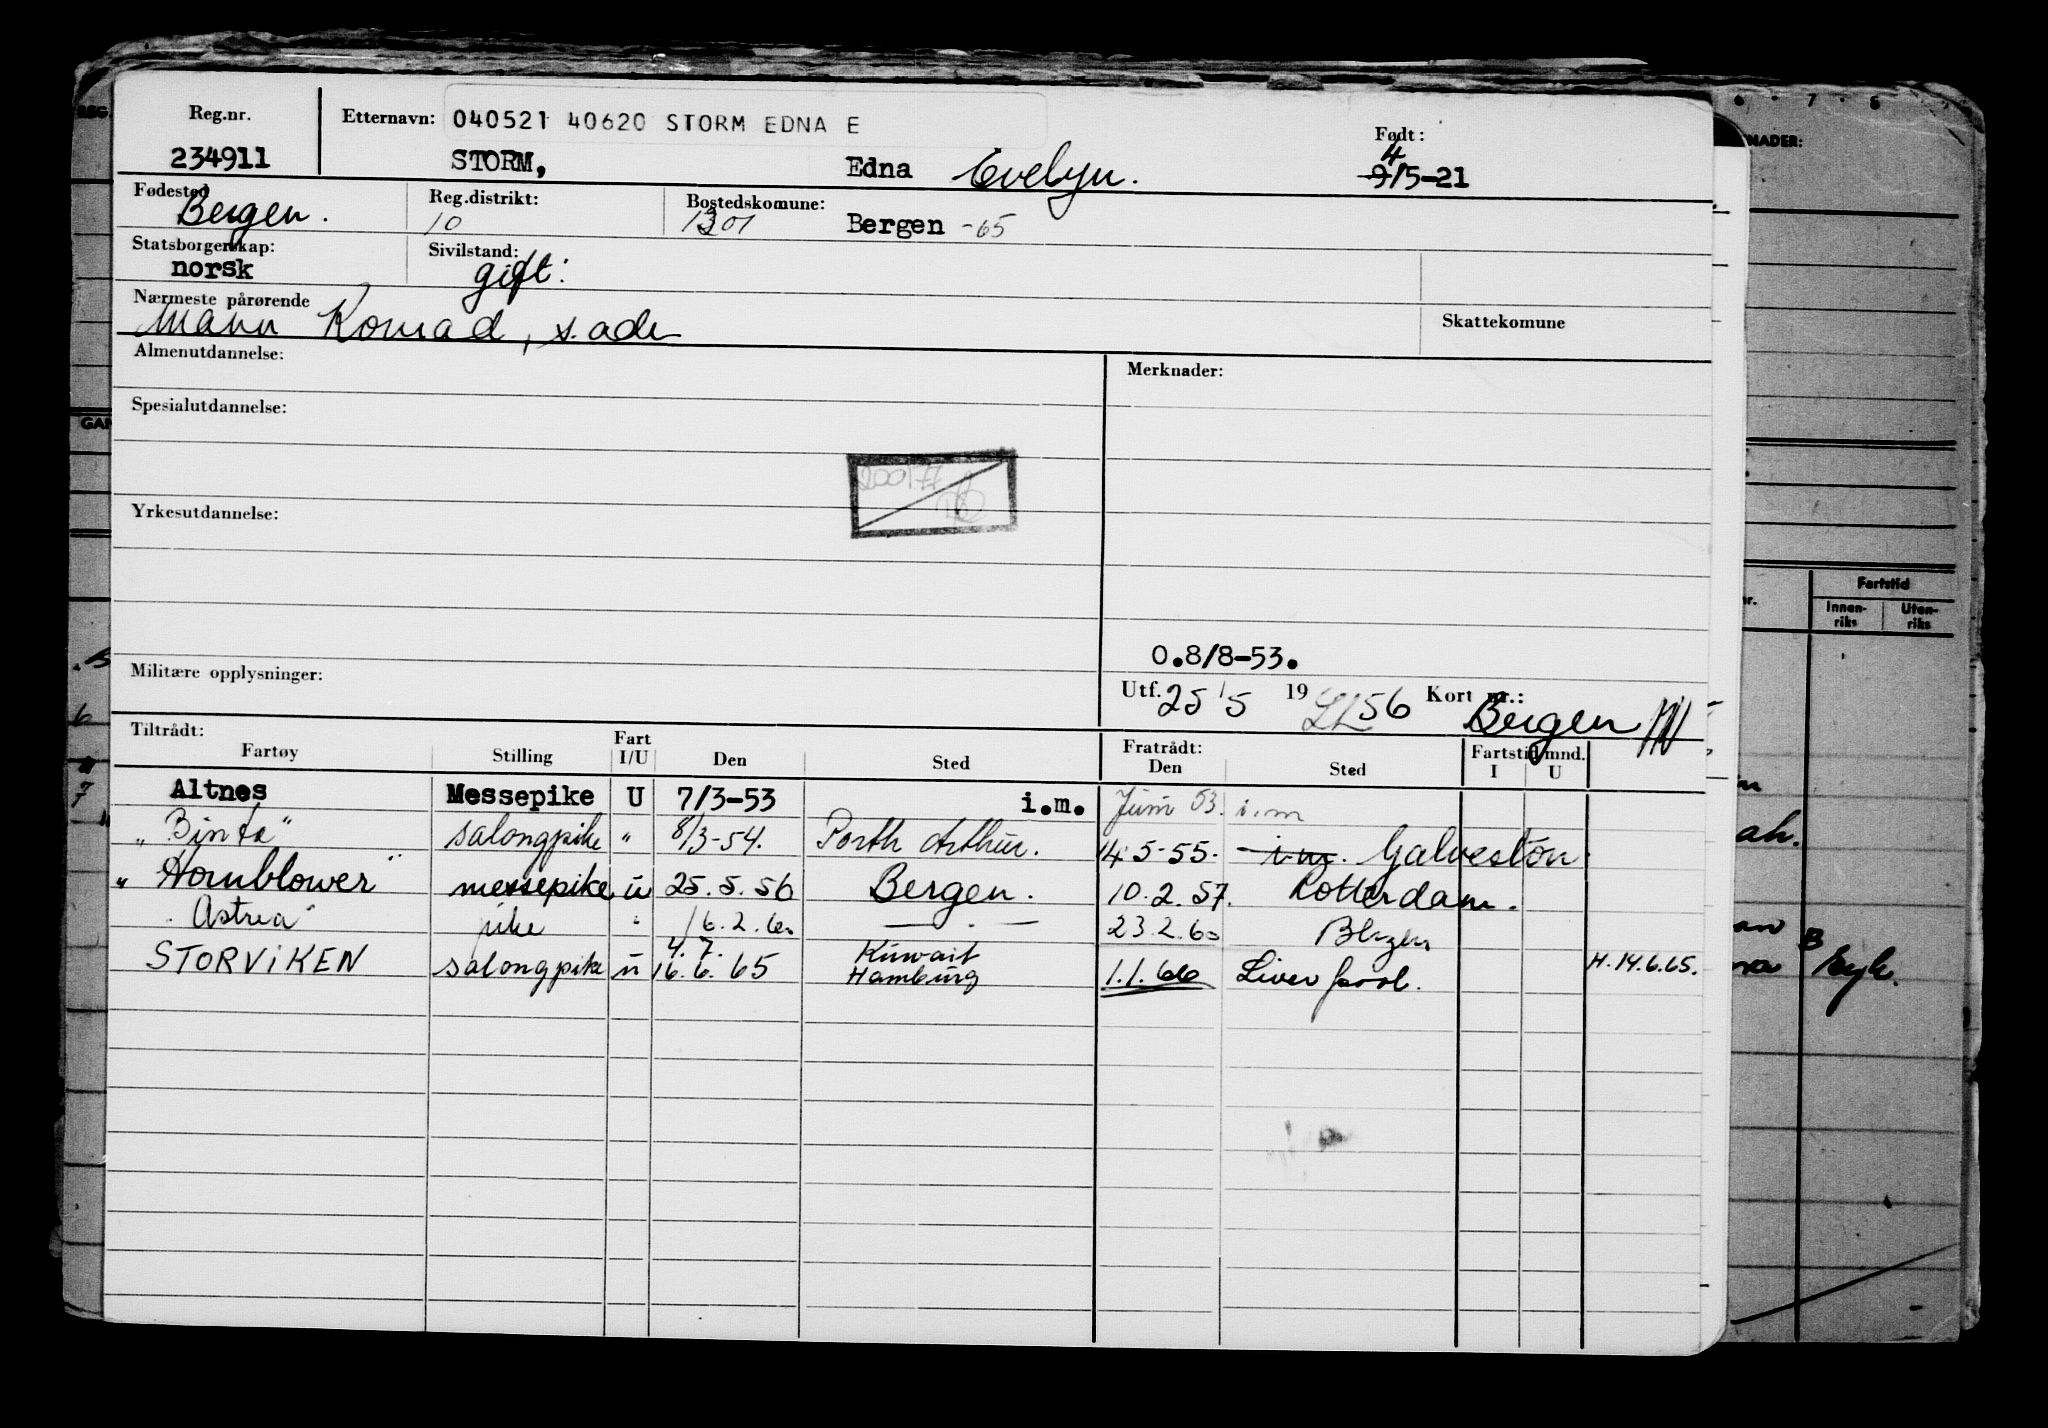 Reg.nr. Etternavn: 040521 40620 STORM EDNA E Født:
234911 STORM, Edna Evelyn. 4
9/5-21
Fødested Reg.distrikt: Bostedskomune:
Bergen. 10 1301 Bergen -65
Statsborgerskap: Sivilstand:
norsk gift.
Nærmeste pårørende Skattekomune
Mann Konrad, s. adr
Almenutdannelse: Merknader:
Spesialutdannelse:
Yrkesutdannelse:
0.8/8-53.
Militære opplysninger: Utf. 25/5 19 56 Kort nr.: Bergen
Tiltrådt: Fratrådt:
Fartøy Stilling Fart I/U Den Sted Den Sted Fartstid mnd. I U
Altnes Messepike U 7/3-53 i.m. Juni 53. i.m
"Binta" salongpike " 8/3-54. Porth Arthur. 14.5-55. i.m. Galveston.
"Hornblower" messepike u 25.5.56 Bergen. 10.2.57. Rotterdam.
Astrea pike " 16.2.60 — — 23.2.60 Bergen
4.7. Kuwait
STORVIKEN salongpike u 16.6.65 Hamburg 1.1.66 Liverpool. H.14.6.65.
6 7 8
NADER:
GAN
Fartstid
nr. Innen-riks Uten-riks